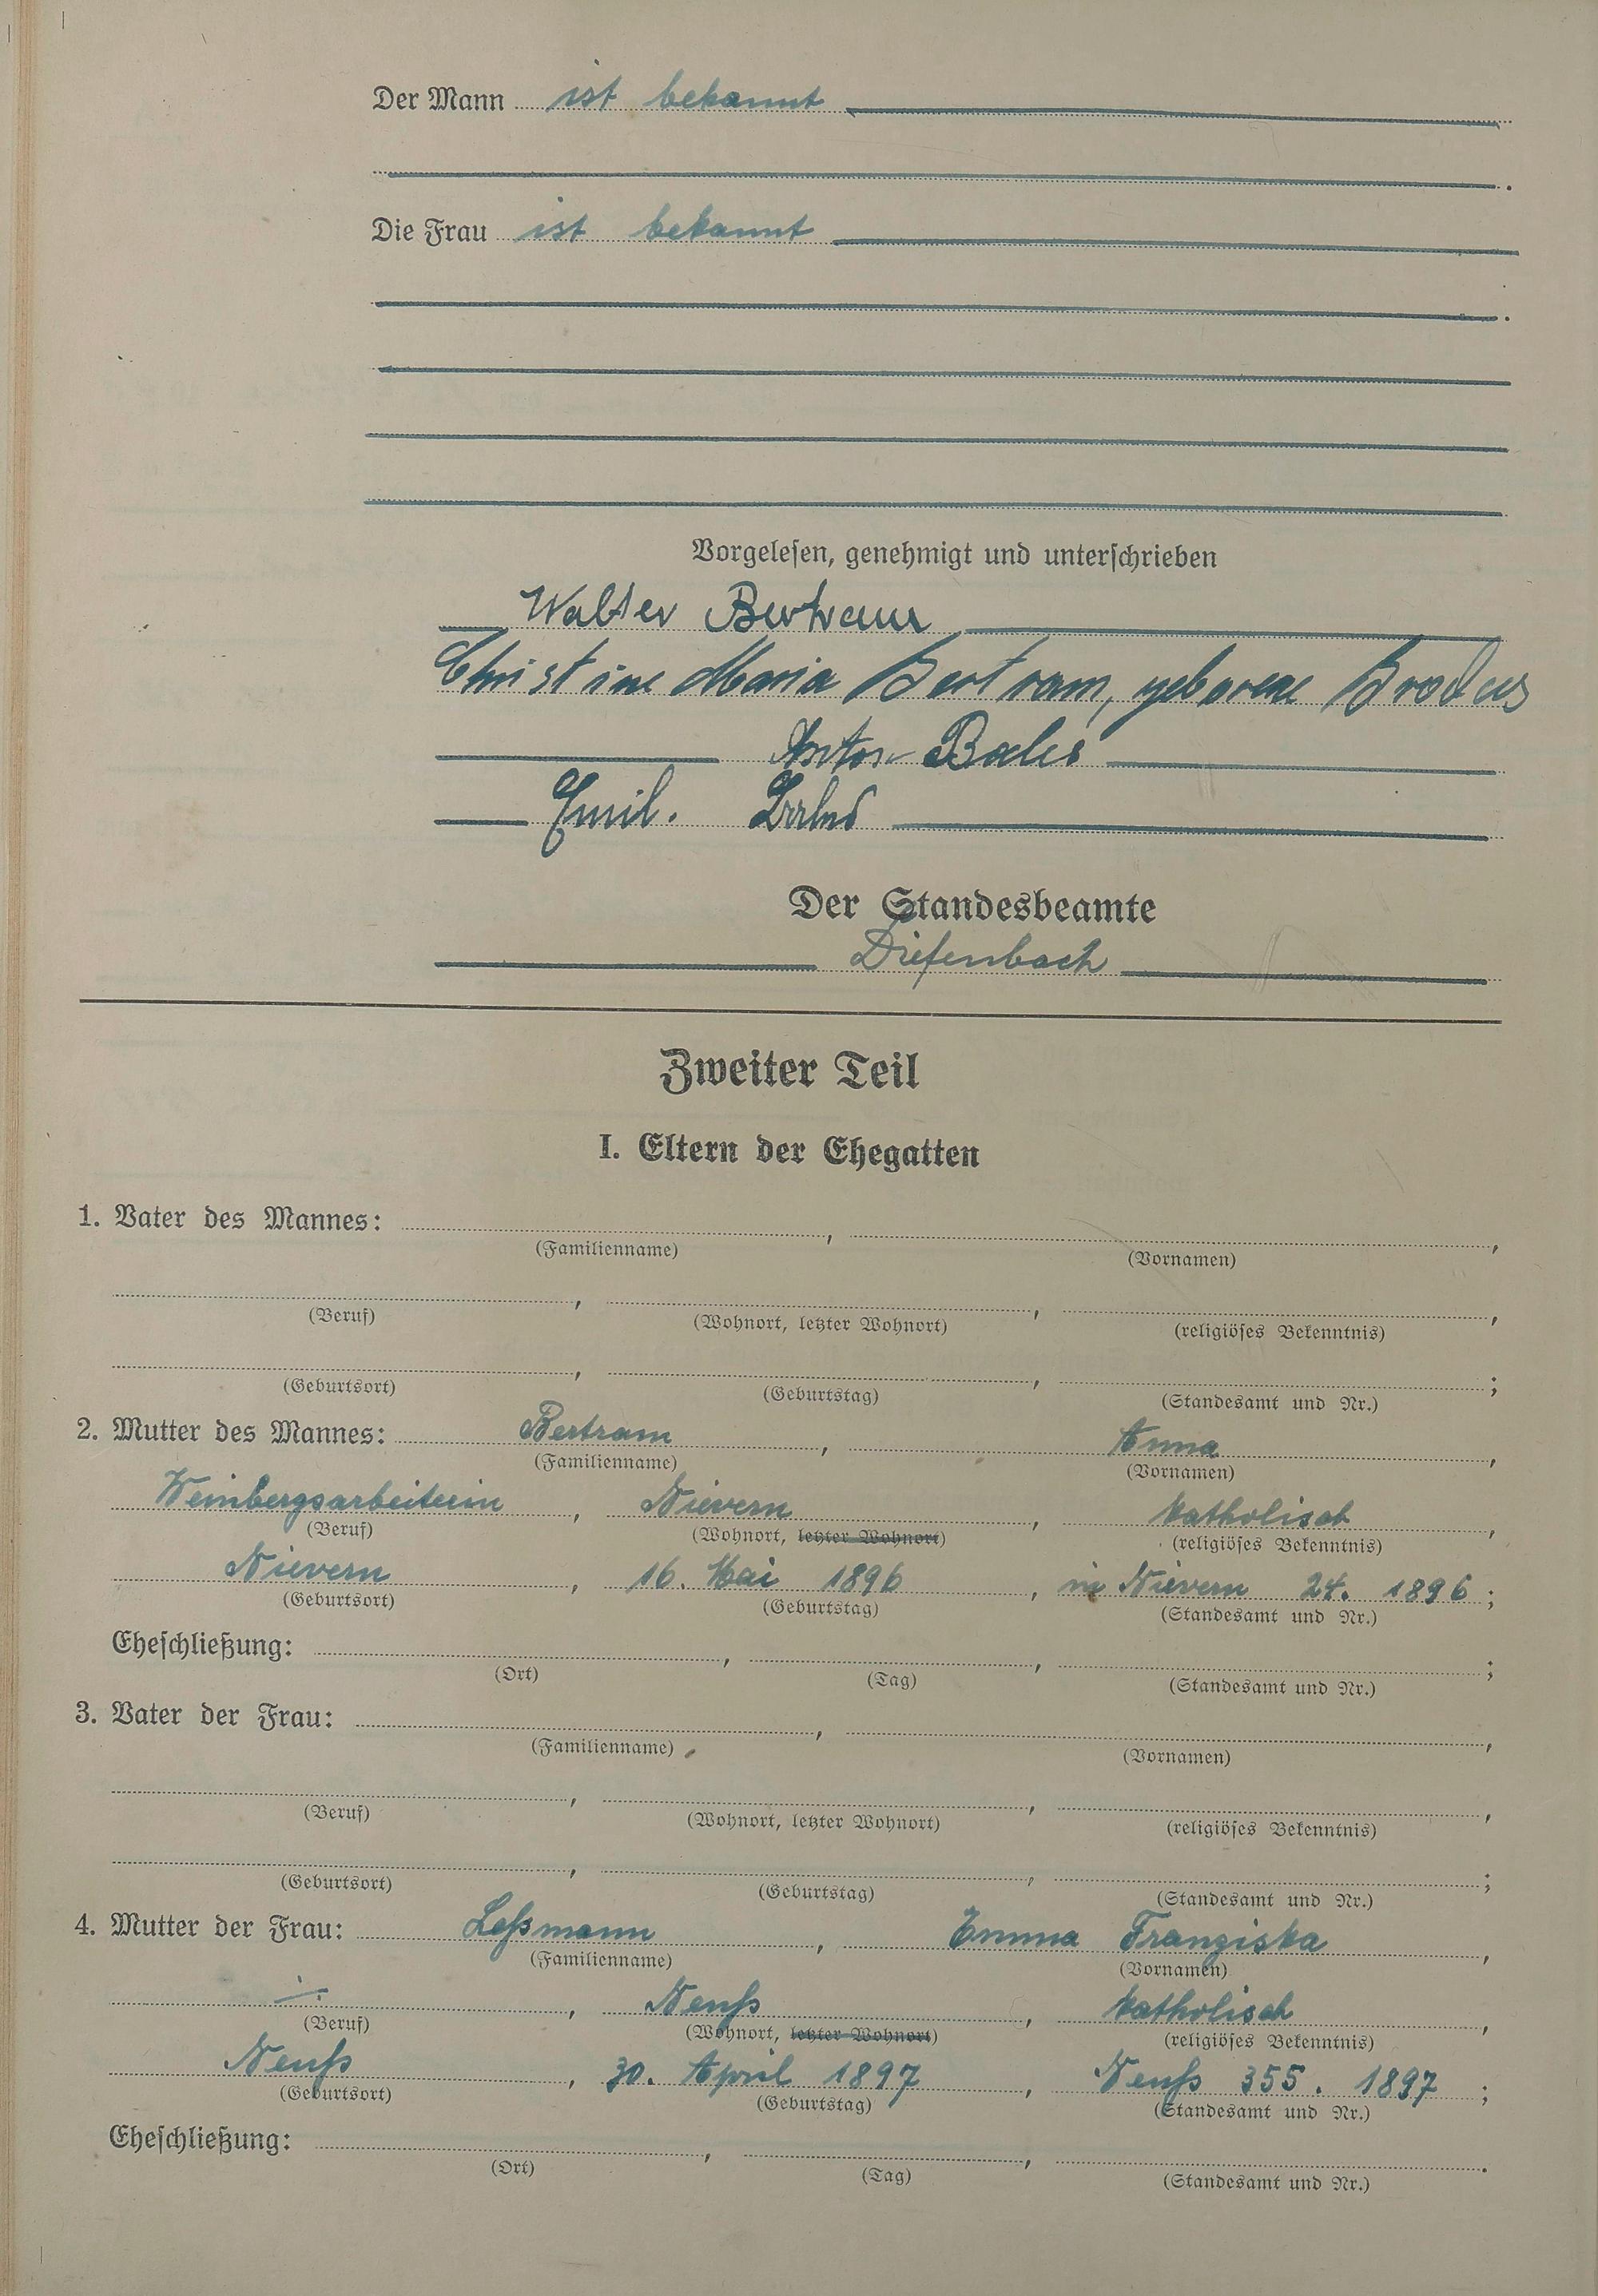 Der Mann ist bekannt
Die Frau ist bekannt
Vorgelesen, genehmigt und unterschrieben
Walter Bertram
Christine Maria Bertram, geborene
Anton Bales
Emil.
Der Standesbeamte
Diefenbach
Zweiter Teil
I. Eltern der Ehegatten
1. Vater des Mannes: , ,
(Familienname) (Vornamen)
, , ,
(Beruf) (Wohnort, letzter Wohnort) (religiöses Bekenntnis)
, , ;
(Geburtsort) (Geburtstag) (Standesamt und Nr.)
2. Mutter des Mannes: Bertram , Anna ,
(Familienname) (Vornamen)
Weinbergsarbeiterin , Nievern , katholisch ,
(Beruf) (Wohnort, letzter Wohnort) (religiöses Bekenntnis)
Nievern , 16. Mai 1896 , in Nievern 24. 1896 ;
(Geburtsort) (Geburtstag) (Standesamt und Nr.)
Eheschließung: , , ;
(Ort) (Tag) (Standesamt und Nr.)
3. Vater der Frau: , ,
(Familienname) (Vornamen)
, , ,
(Beruf) (Wohnort, letzter Wohnort) (religiöses Bekenntnis)
, , ;
(Geburtsort) (Geburtstag) (Standesamt und Nr.)
4. Mutter der Frau: Leßmann , Emma Franziska ,
(Familienname) (Vornamen)
, Neuß , katholisch ,
(Beruf) (Wohnort, letzter Wohnort) (religiöses Bekenntnis)
Neuß , 30. April 1897 , Neuß 355. 1897 ;
(Geburtsort) (Geburtstag) (Standesamt und Nr.)
Eheschließung: , , .
(Ort) (Tag) (Standesamt und Nr.)